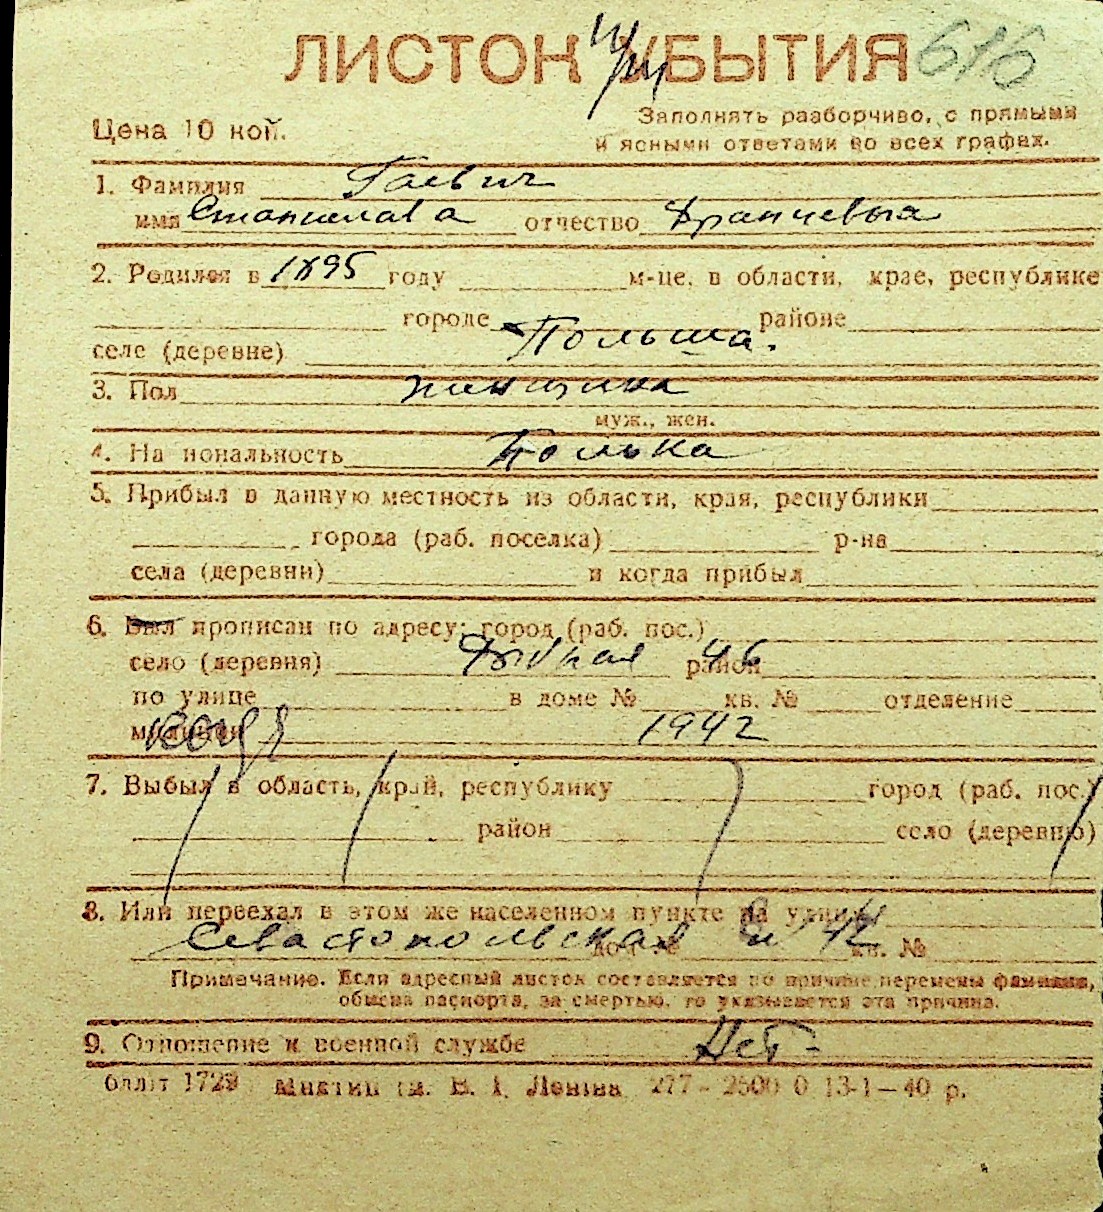 ЛИСТОК УБЫТИЯ 616
Цена 10 коп.
Заполнять разборчиво, с прямыми
и ясными ответами во всех графах.
1. Фамилия Гаевич
имя Станислава отчество Францевна
2. Родился в 1895 году м-це, в области, крае, республике
городе районе
селе (деревне) Польша.
3. Пол женщина
муж., жен.
4. Национальность Полька
5. Прибыл в данную местность из области, края, республики
города (раб. поселка) р-на
села (деревни) и когда прибыл
6. Был прописан по адресу: город (раб. пос.)
село (деревня) район 46
по улице в доме № кв. № отделение
милиции 1942
7. Выбыл в область, край, республику город (раб. пос.)
район село (деревню)
8. Или переехал в этом же населенном пункте на улицу
Севастопольская дом № 42 кв. №
Примечание. Если адресный листок составляется по причине перемены фамилии,
обмена паспорта, за смертью, то указывается эта причина.
9. Отношение к военной службе Нет -
1729 им. В. И. Ленина 277 - 2500 0 13-1-40 р.